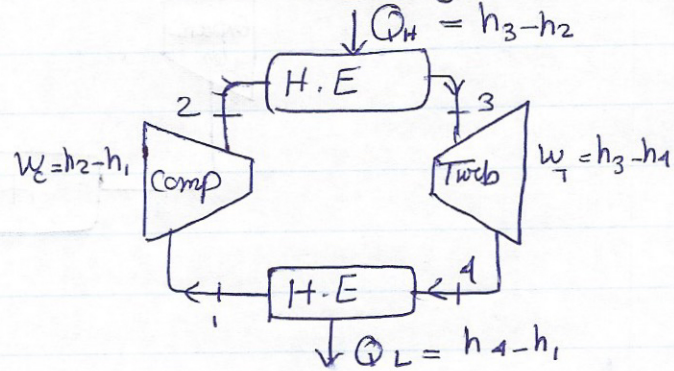 Q_H = h3-h2
H.E
2
3
Wc=h2-h1
Comp
Turb
W_T = h3-h4
H.E
4
1
Q_L = h4-h1